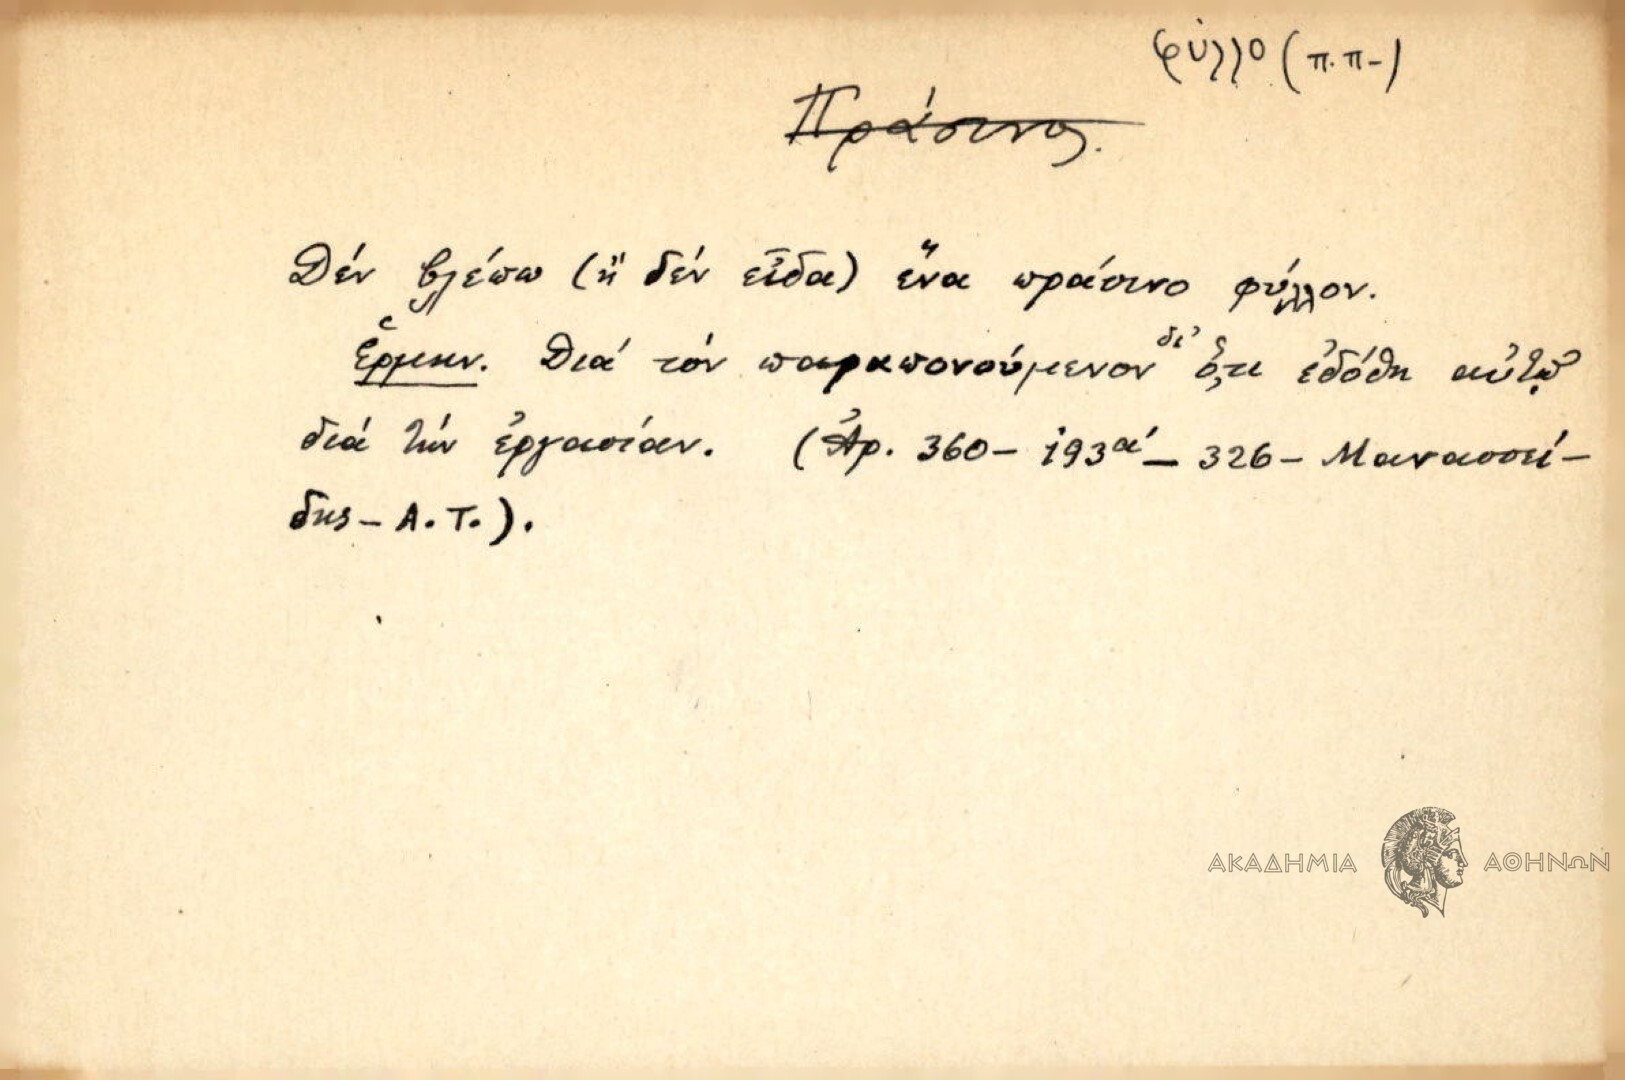 φύλλο (π.π-)
Πράσινος.
Δέν βλέπω (ἤ δέν εἶδα) ἕνα πράσινο φύλλον.
Ἑρμην. Διά τόν παραπονούμενον δι' ὅ,τι ἐδόθη αὐτῷ
διά τήν ἐργασίαν. (Ἀρ. 360 - 193α' - 326 - Μανασσεί-
δης - Α.Τ.).
ΑΚΑΔΗΜΙΑ ΑΘΗΝΩΝ